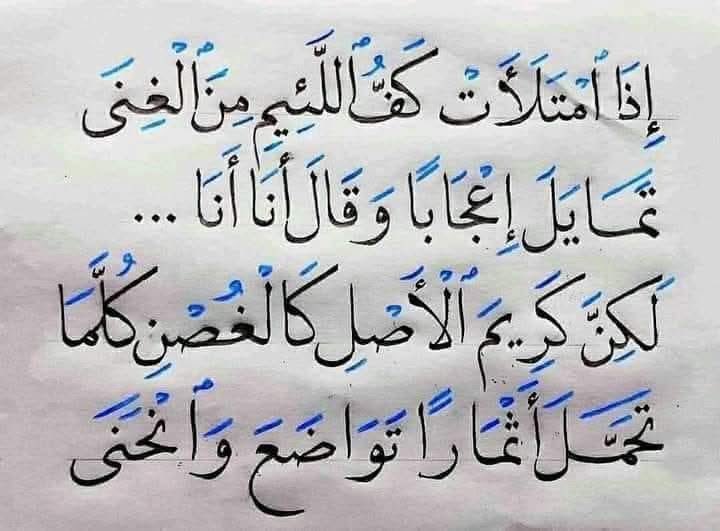 إِذَا ٱمْتَلَأَتْ كَفُّ ٱللَّئِيمِ مِنَ ٱلْغِنَى
تَمَايَلَ إِعْجَابًا وَقَالَ أَنَا أَنَا ...
لَكِنَّ كَرِيمَ ٱلْأَصْلِ كَالْغُصْنِ كُلَّمَا
تَحَمَّلَ أَثْمَارًا تَوَاضَعَ وَٱنْحَنَى